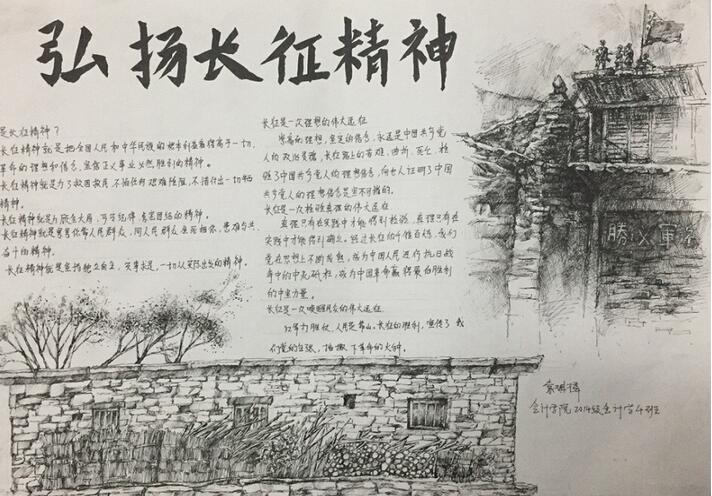 弘扬长征精神
是长征精神？
长征精神就是把全国人民和中华民族的根本利益看得高于一切,
革命的理想和信念,坚信正义事业必然胜利的精神。
长征精神就是为了救国救民,不怕任何艰难险阻,不惜付出一切牺牲
精神。
长征精神就是顾全大局、严守纪律、紧密团结的精神。
长征精神就是紧紧依靠人民群众,同人民群众生死相依、患难与共、
奋斗的精神。
长征精神就是坚持独立自主,实事求是,一切从实际出发的精神。
长征是一次理想的伟大远征
崇高的理想,坚定的信念,永远是中国共产党
人的政治灵魂,长征路上的苦难、曲折、死亡,检
验了中国共产党人的理想信念,向世人证明了中国
共产党人的理想信念是坚不可摧的。
长征是一次检验真理的伟大远征
真理只有在实践中才能得到检验,真理只有在
实践中才能得到确立。经过长征的千锤百炼,我们
党在思想上不断成熟,成为中国人民进行抗日战
争的中流砥柱,成为中国革命赢得最后胜利
的中坚力量。
长征是一次唤醒民众的伟大远征
红军打胜仗,人民是靠山。长征的胜利,宣传了我
们党的主张,播撒下革命的火种。
勝义軍
会计学院2014级会计学4班